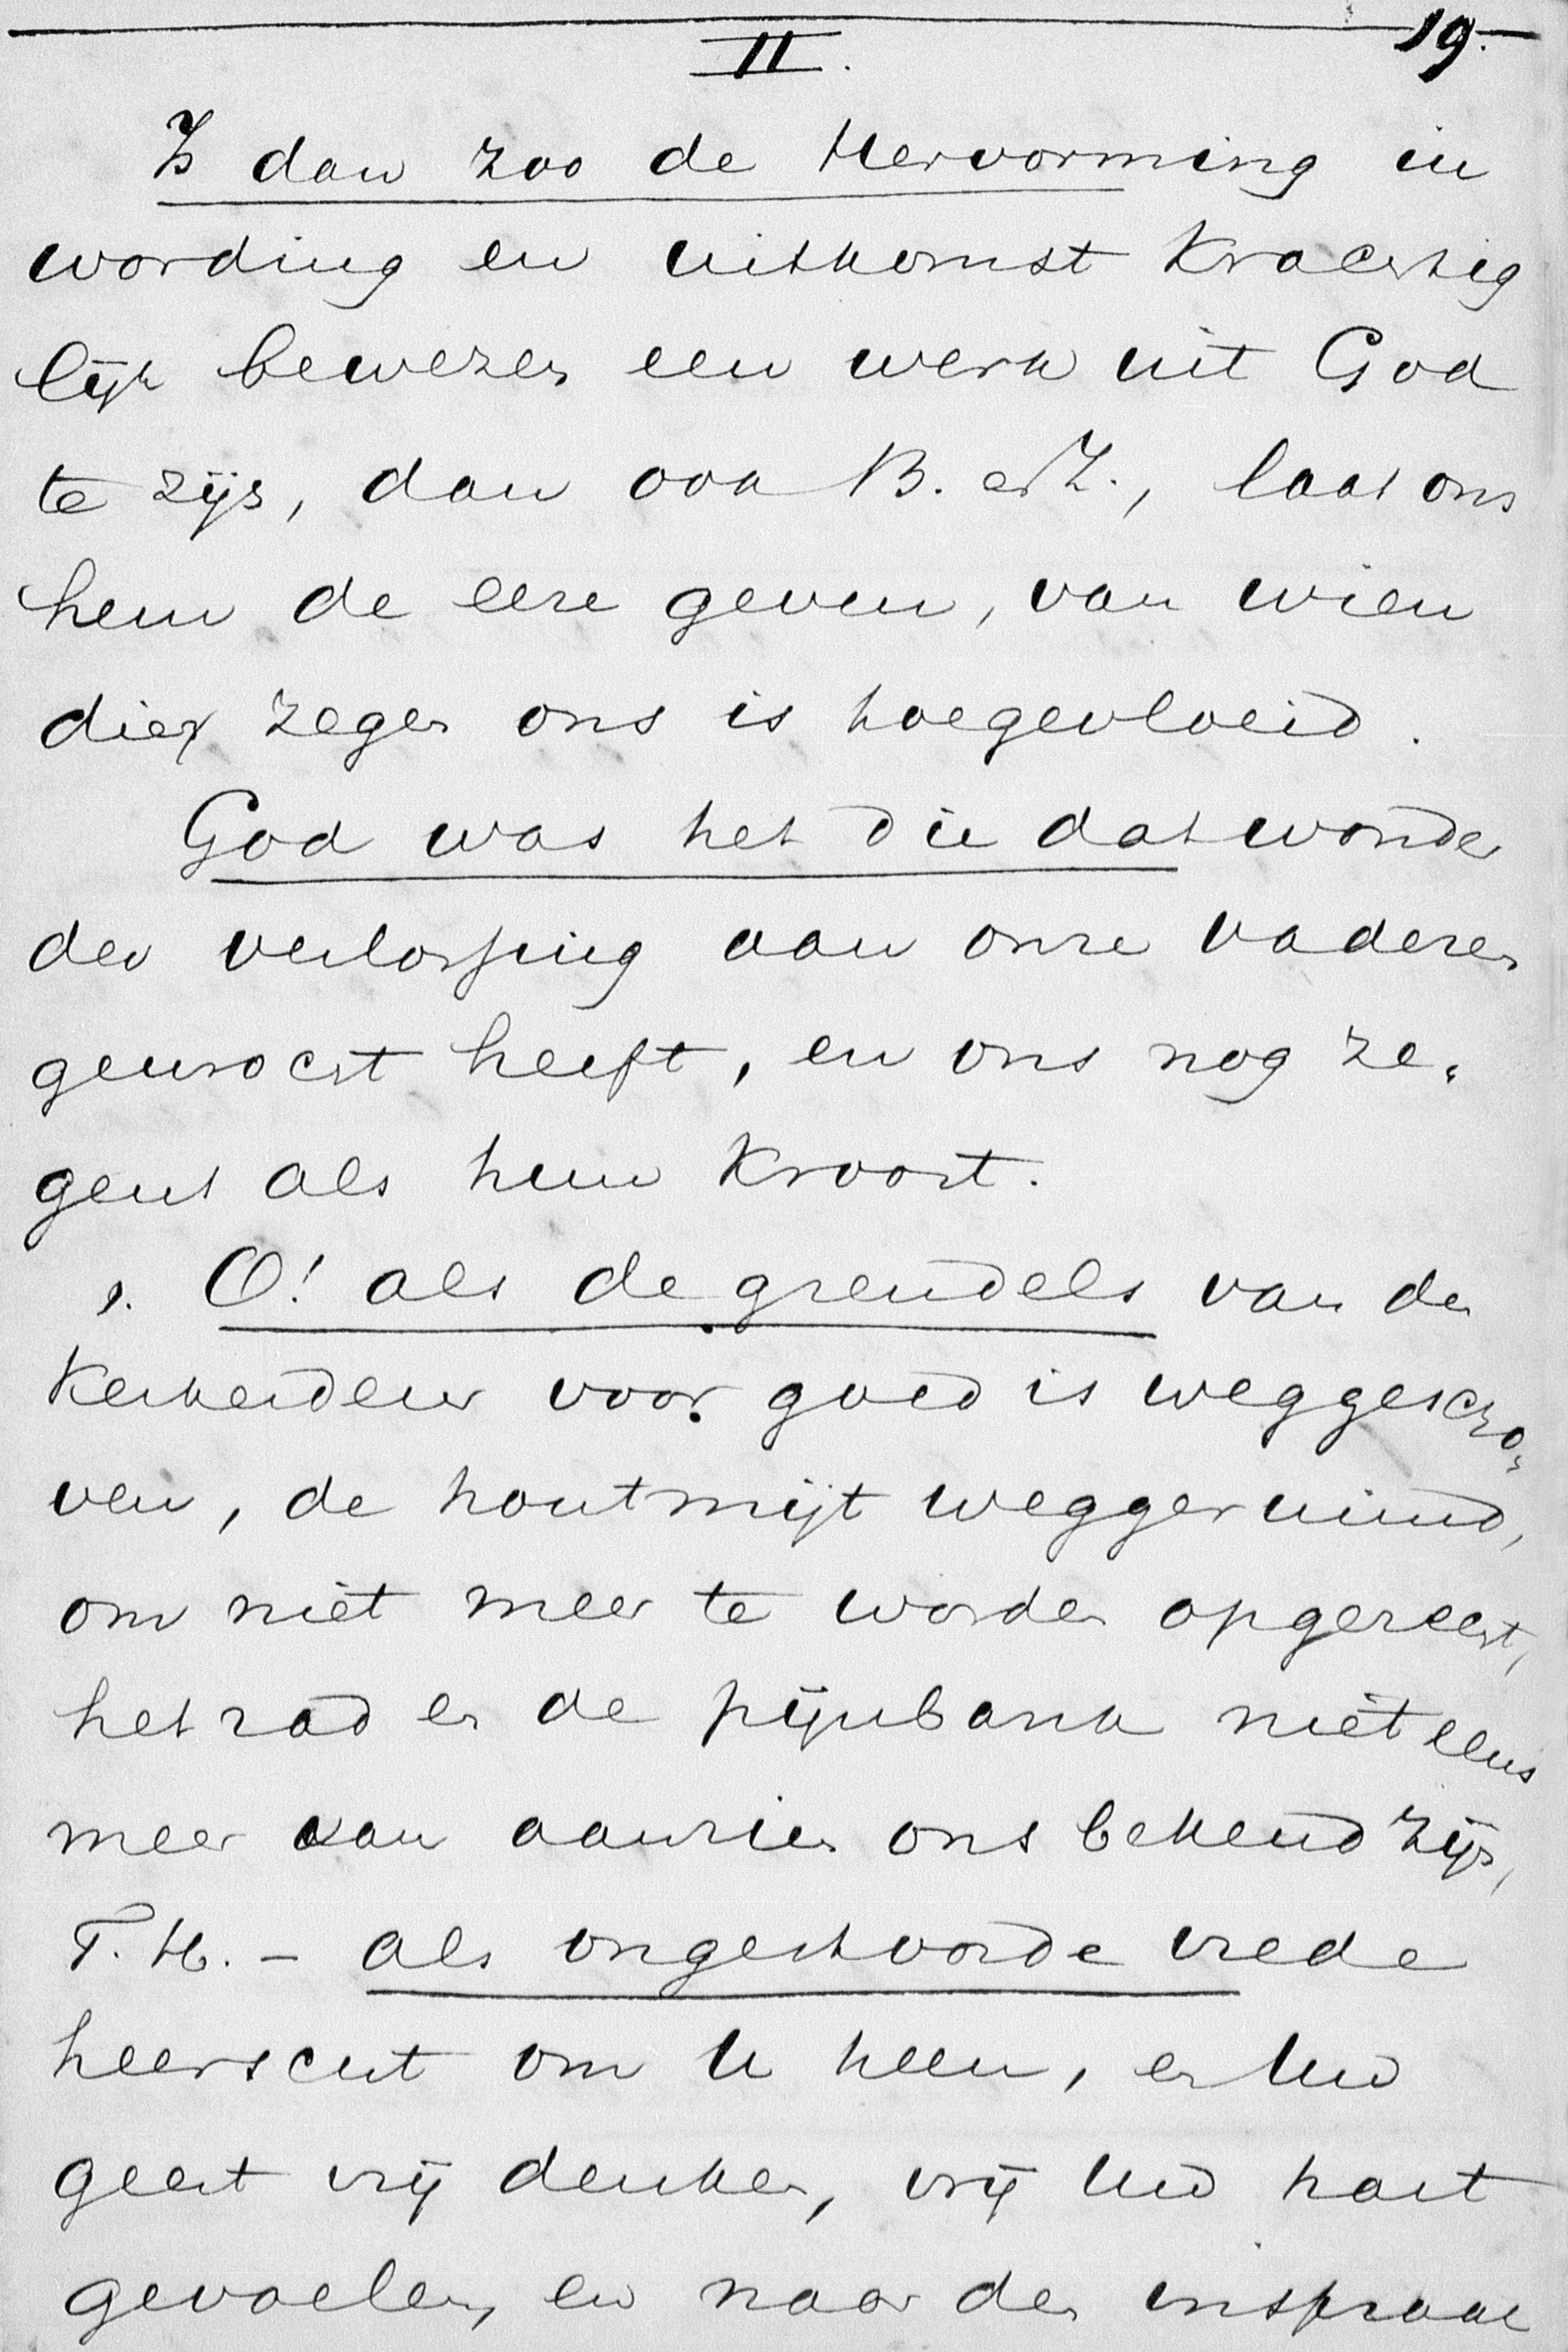 19.
II.
Is dan zoo de Hervorming in
wording en uitkomst Krachtig
lijk bewezen een werk uit God
te zijn, dan ook B. en Z., laat ons
hem de eere geven, van wien
die zegen ons is toegevloeid.
God was het die dat wonder
der verlossing aan onze vaderen
gewrocht heeft, en ons nog ze-
gent als hun Kroost.
1. O! als de grendels van de
Kerkerdeur voor goed is weggescho-
ven, de houtmijt weggeruimd,
om niet meer te worden opgerecht,
het rad en de pijnbank niet eens
meer van aanzien ons bekend zijn,
T. H. - als ongestoorde vrede
heerscht om U heen, en Uw
geest vrij denken, vrij Uw hart
gevoelen, en naar den inspraak